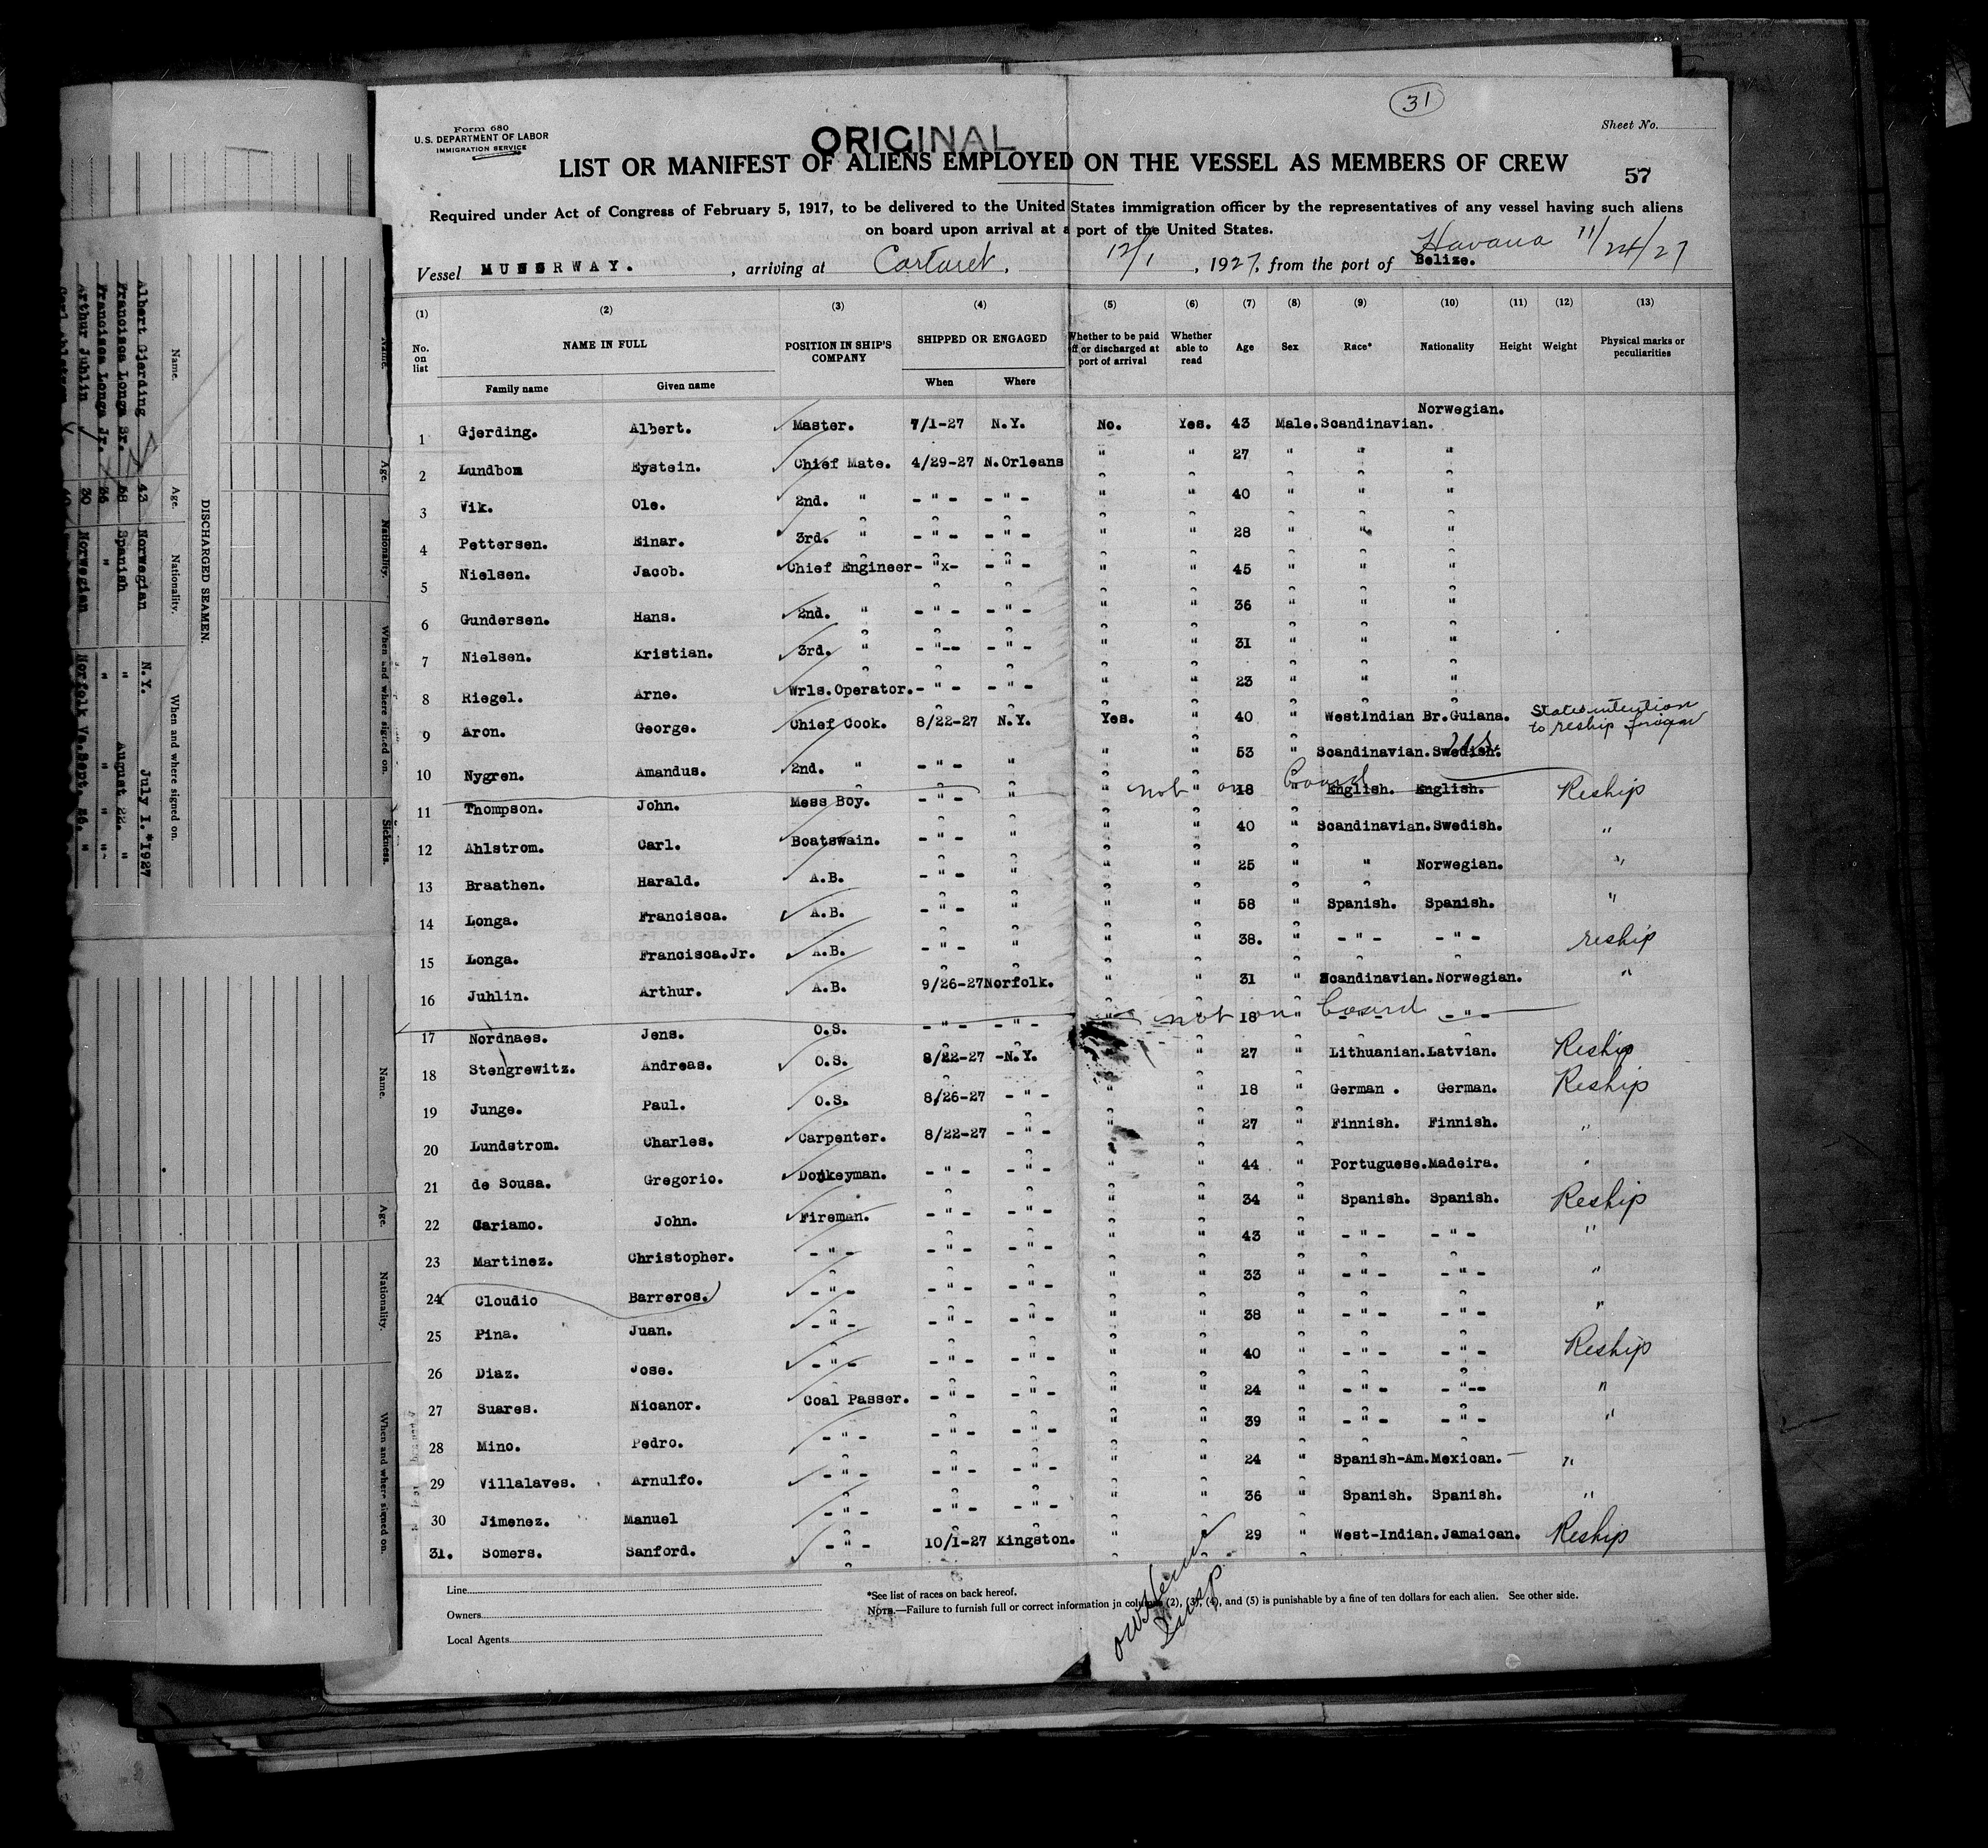 31
Form 680
U.S. DEPARTMENT OF LABOR
IMMIGRATION SERVICE
ORIGINAL
Sheet No.
LIST OR MANIFEST OF ALIENS EMPLOYED ON THE VESSEL AS MEMBERS OF CREW
57
Required under Act of Congress of February 5, 1917, to be delivered to the United States immigration officer by the representatives of any vessel having such aliens
on board upon arrival at a port of the United States.
Vessel MUNORWAY. , arriving at Carteret, 12/1 , 1927, from the port of Belize. Havana 11/24/27
(1) (2) (3) (4) (5) (6) (7) (8) (9) (10) (11) (12) (13)
No. on list NAME IN FULL POSITION IN SHIP'S COMPANY SHIPPED OR ENGAGED Whether to be paid off or discharged at port of arrival Whether able to read Age Sex Race* Nationality Height Weight Physical marks or peculiarities
Family name Given name When Where
1 Gjerding. Albert. Master. 7/1-27 N.Y. No. Yes. 43 Male. Scandinavian. Norwegian.
2 Lundbom Eystein. Chief Mate. 4/29-27 N.Orleans " " 27 " " "
3 Vik. Ole. 2nd. " - " - - " - " " 40 " " "
4 Pettersen. Einar. 3rd. " - " - - " - " " 28 " " "
5 Nielsen. Jacob. Chief Engineer - "x- - " - " " 45 " " "
6 Gundersen. Hans. 2nd. " - " - - " - " " 36 " " "
7 Nielsen. Kristian. 3rd. " - "-- - " - " " 31 " " "
8 Riegel. Arne. Wrls.Operator. - " - - " - " " 23 " " "
9 Aron. George. Chief Cook. 8/22-27 N.Y. Yes. " 40 " WestIndian Br.Guiana. States intention to reship foreign
10 Nygren. Amandus. 2nd. " - " - " " " 53 " Scandinavian. Swedish.
11 Thompson. John. Mess Boy. - " - " " not on board " 18 " English. English. Reship
12 Ahlstrom. Carl. Boatswain. - " - " " " 40 " Scandinavian. Swedish. "
13 Braathen. Harald. A.B. - " - " " " 25 " " Norwegian. "
14 Longa. Francisca. A.B. - " - " " " 58 " Spanish. Spanish. "
15 Longa. Francisca.Jr. A.B. - " - " " " 38. " - " - - " - reship
16 Juhlin. Arthur. A.B. 9/26-27 Norfolk. " " 31 " Scandinavian. Norwegian. "
17 Nordnaes. Jens. O.S. - " - - " - " not on board 18 " - " - - " -
18 Stengrewitz. Andreas. O.S. 8/22-27 -N.Y. " 27 " Lithuanian. Latvian. Reship
19 Junge. Paul. O.S. 8/26-27 - " - " " 18 " German . German. Reship
20 Lundstrom. Charles. Carpenter. 8/22-27 - " - " 27 " Finnish. Finnish. "
21 de Sousa. Gregorio. Donkeyman. - " - - " - " " 44 " Portuguese. Madeira. "
22 Cariamo. John. Fireman. - " - - " - " " 34 " Spanish. Spanish. Reship
23 Martinez. Christopher. - " - - " - - " - " " 43 " - " - - " - "
24 Cloudio Barreros. - " - - " - - " - " " 33 " - " - - " - "
25 Pina. Juan. - " - - " - - " - " " 38 " - " - - " - "
26 Diaz. Jose. - " - - " - - " - " " 40 " - " - - " - Reship
27 Suares. Nicanor. Coal Passer. - " - - " - " " 24 " - " - - "-- "
28 Mino. Pedro. - " - - " - - " - " " 39 " - " - - " - "
29 Villalaves. Arnulfo. - " - - " - - " - " " 24 " Spanish-Am. Mexican. "
30 Jimenez. Manuel - " - - " - - " - " " 36 " Spanish. Spanish. "
31. Somers. Sanford. - " - 10/1-27 Kingston. " " 29 " West-Indian. Jamaican. Reship
Line
Owners
Local Agents
*See list of races on back hereof.
NOTE.—Failure to furnish full or correct information in columns (2), (3), (4), and (5) is punishable by a fine of ten dollars for each alien. See other side.
DISCHARGED SEAMEN.
Name. Age. Nationality. When and where signed on.
Albert Gjerding 43 Norwegian N.Y. July 1. *1927
Francisca Longa Sr. 58 Spanish " August 22. "
Francisca Longa Jr. 36 " " " "
Arthur Juhlin 30 Norwegian Norfolk Va. Sept. 26. "
Name. Age. Nationality. When and where signed on. Sickness.
Name. Age. Nationality. When and where signed on.